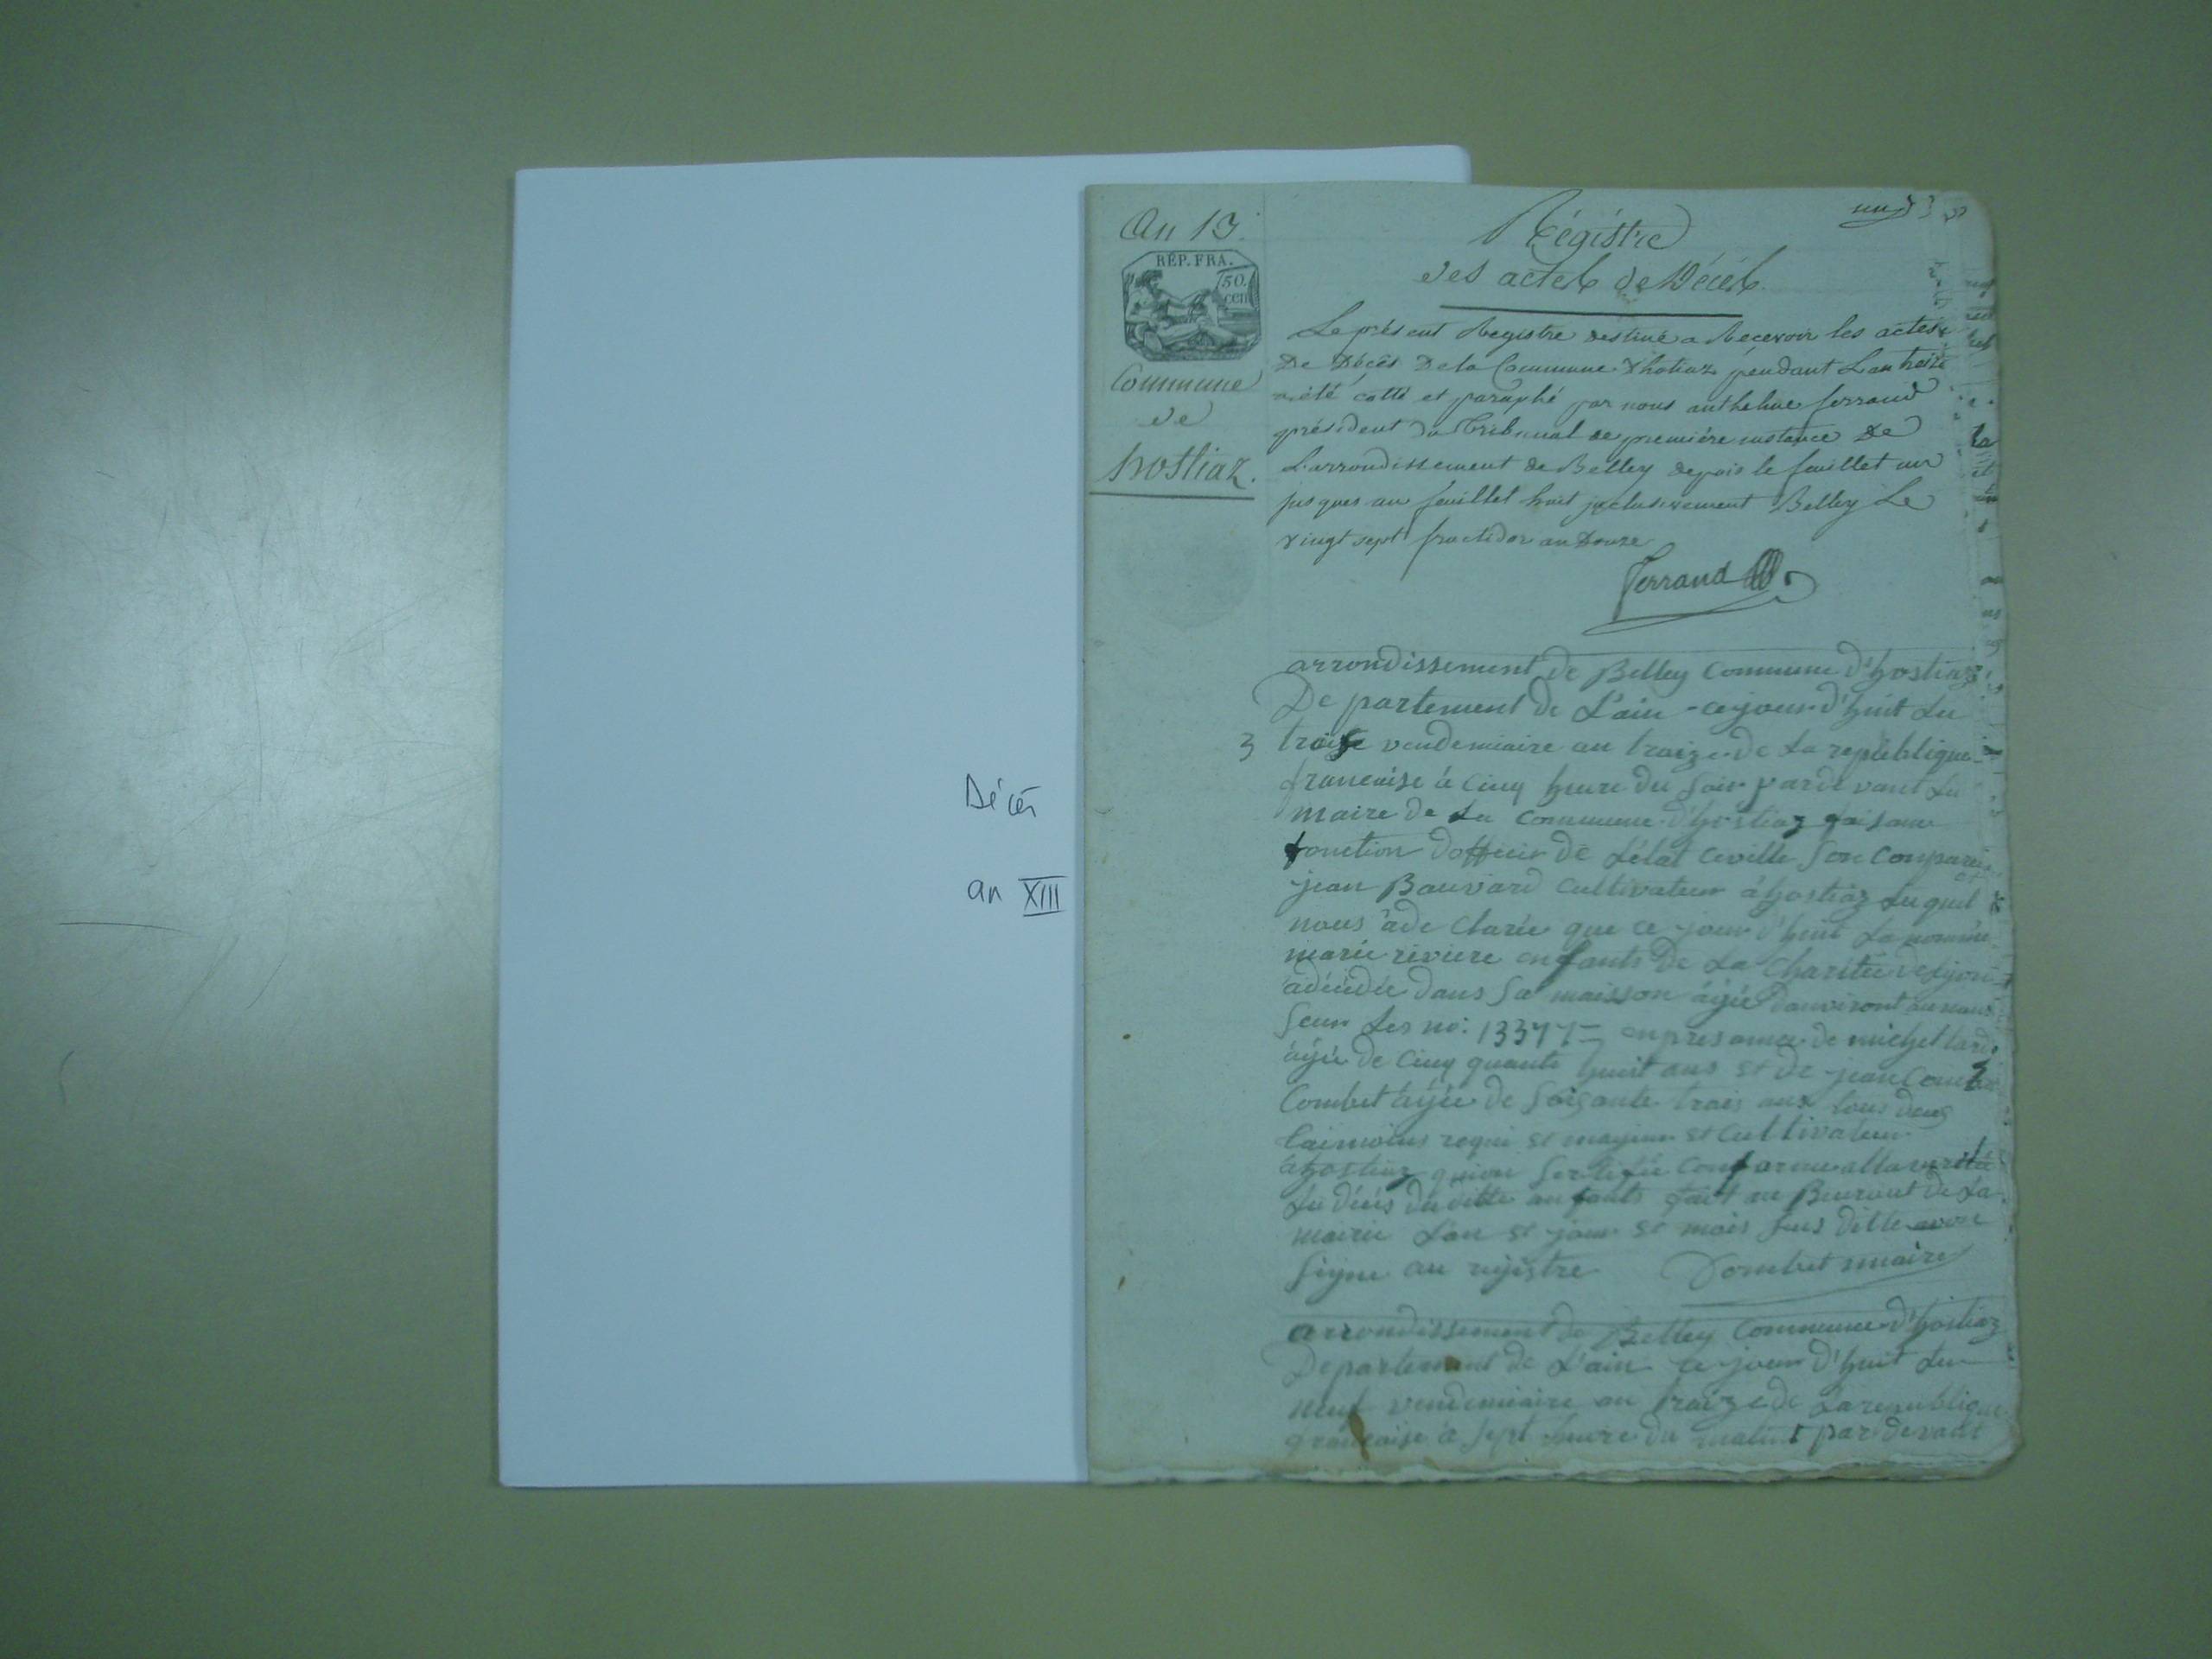 Décès
an XIII
An 13.
RÉP. FRA.
50
cen
Commune
de
hostiaz.
Régistre
des actes de Décès.
Le présent Registre destiné a Recevoir les actes
De Décès De la Commune d'hotiaz pendant L'an treize
a été cotté et paraphé par nous anthelme ferrand
président du Tribunal de première instance De
L'arrondissement de Belley depuis le feuillet un
jusques au feuillet huit inclusivement Belley Le
vingt sept fructidor an Douze
ferrand
arrondissement de Belley Commune d'hostiaz
Departement de L'ain ce jour d'huit Le
3
troise vendemiaire an traize de La republique
francaise à Cinq heure du soir par de vant Le
maire de La Commune d'hostiaz faisan
fonction dofficier de L'état Civille son Comparu
jean Bauvard Cultivateur à hostiaz Lequel
nous à de Clarée que ce jour d'huit La nomée
marie riviere enfants de La Charitée de Lyon
adécédée dans sa maisson agée danviront
sous Les no: 13377 en presance de michel tardi
agée de Cinq quante huit ans et de jean
Combet agée de soisante trois ans tous deus
temoins requi et majeur et Cultivateur
à hostiaz certifiée Conforme alla veritée
Le décés de ditte enfants fait au Bureaut de La
mairie L'an et jour et mois sus ditte avon
signe au rejistre Combet maire
arrondissement de Belley Commune d'hostiaz
Departement de L'ain ce jour d'huit Le
neuf vendemiaire an traize de La republique
francaise à sept heure du matint par devant